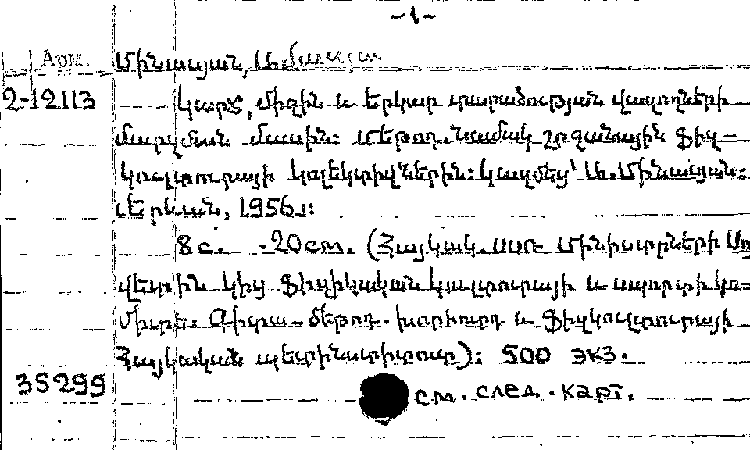 -1-
Арм.
Մինասյան, Ա.
2-12113 Կարճ, միջին և երկար տարածության վազողների
մարզման մասին: Մեթոդ. նամակ շրջանային ֆիզ-
կուլտուրայի կոլեկտիվներին: Կազմեց՝ Ա. Մինասյան:
Երևան, 1956թ:
8с. -20см. (Հայկակ. ՍՍՌ Մինիստրների Սո
վետին կից Ֆիզիկական կուլտուրայի և սպորտի կո-
միտե. Գիտա-մեթոդ. խորհուրդ և Ֆիզկուլտուրայի
Հայկական պետինստիտուտ): 500 экз.
35299 см. след. карт.